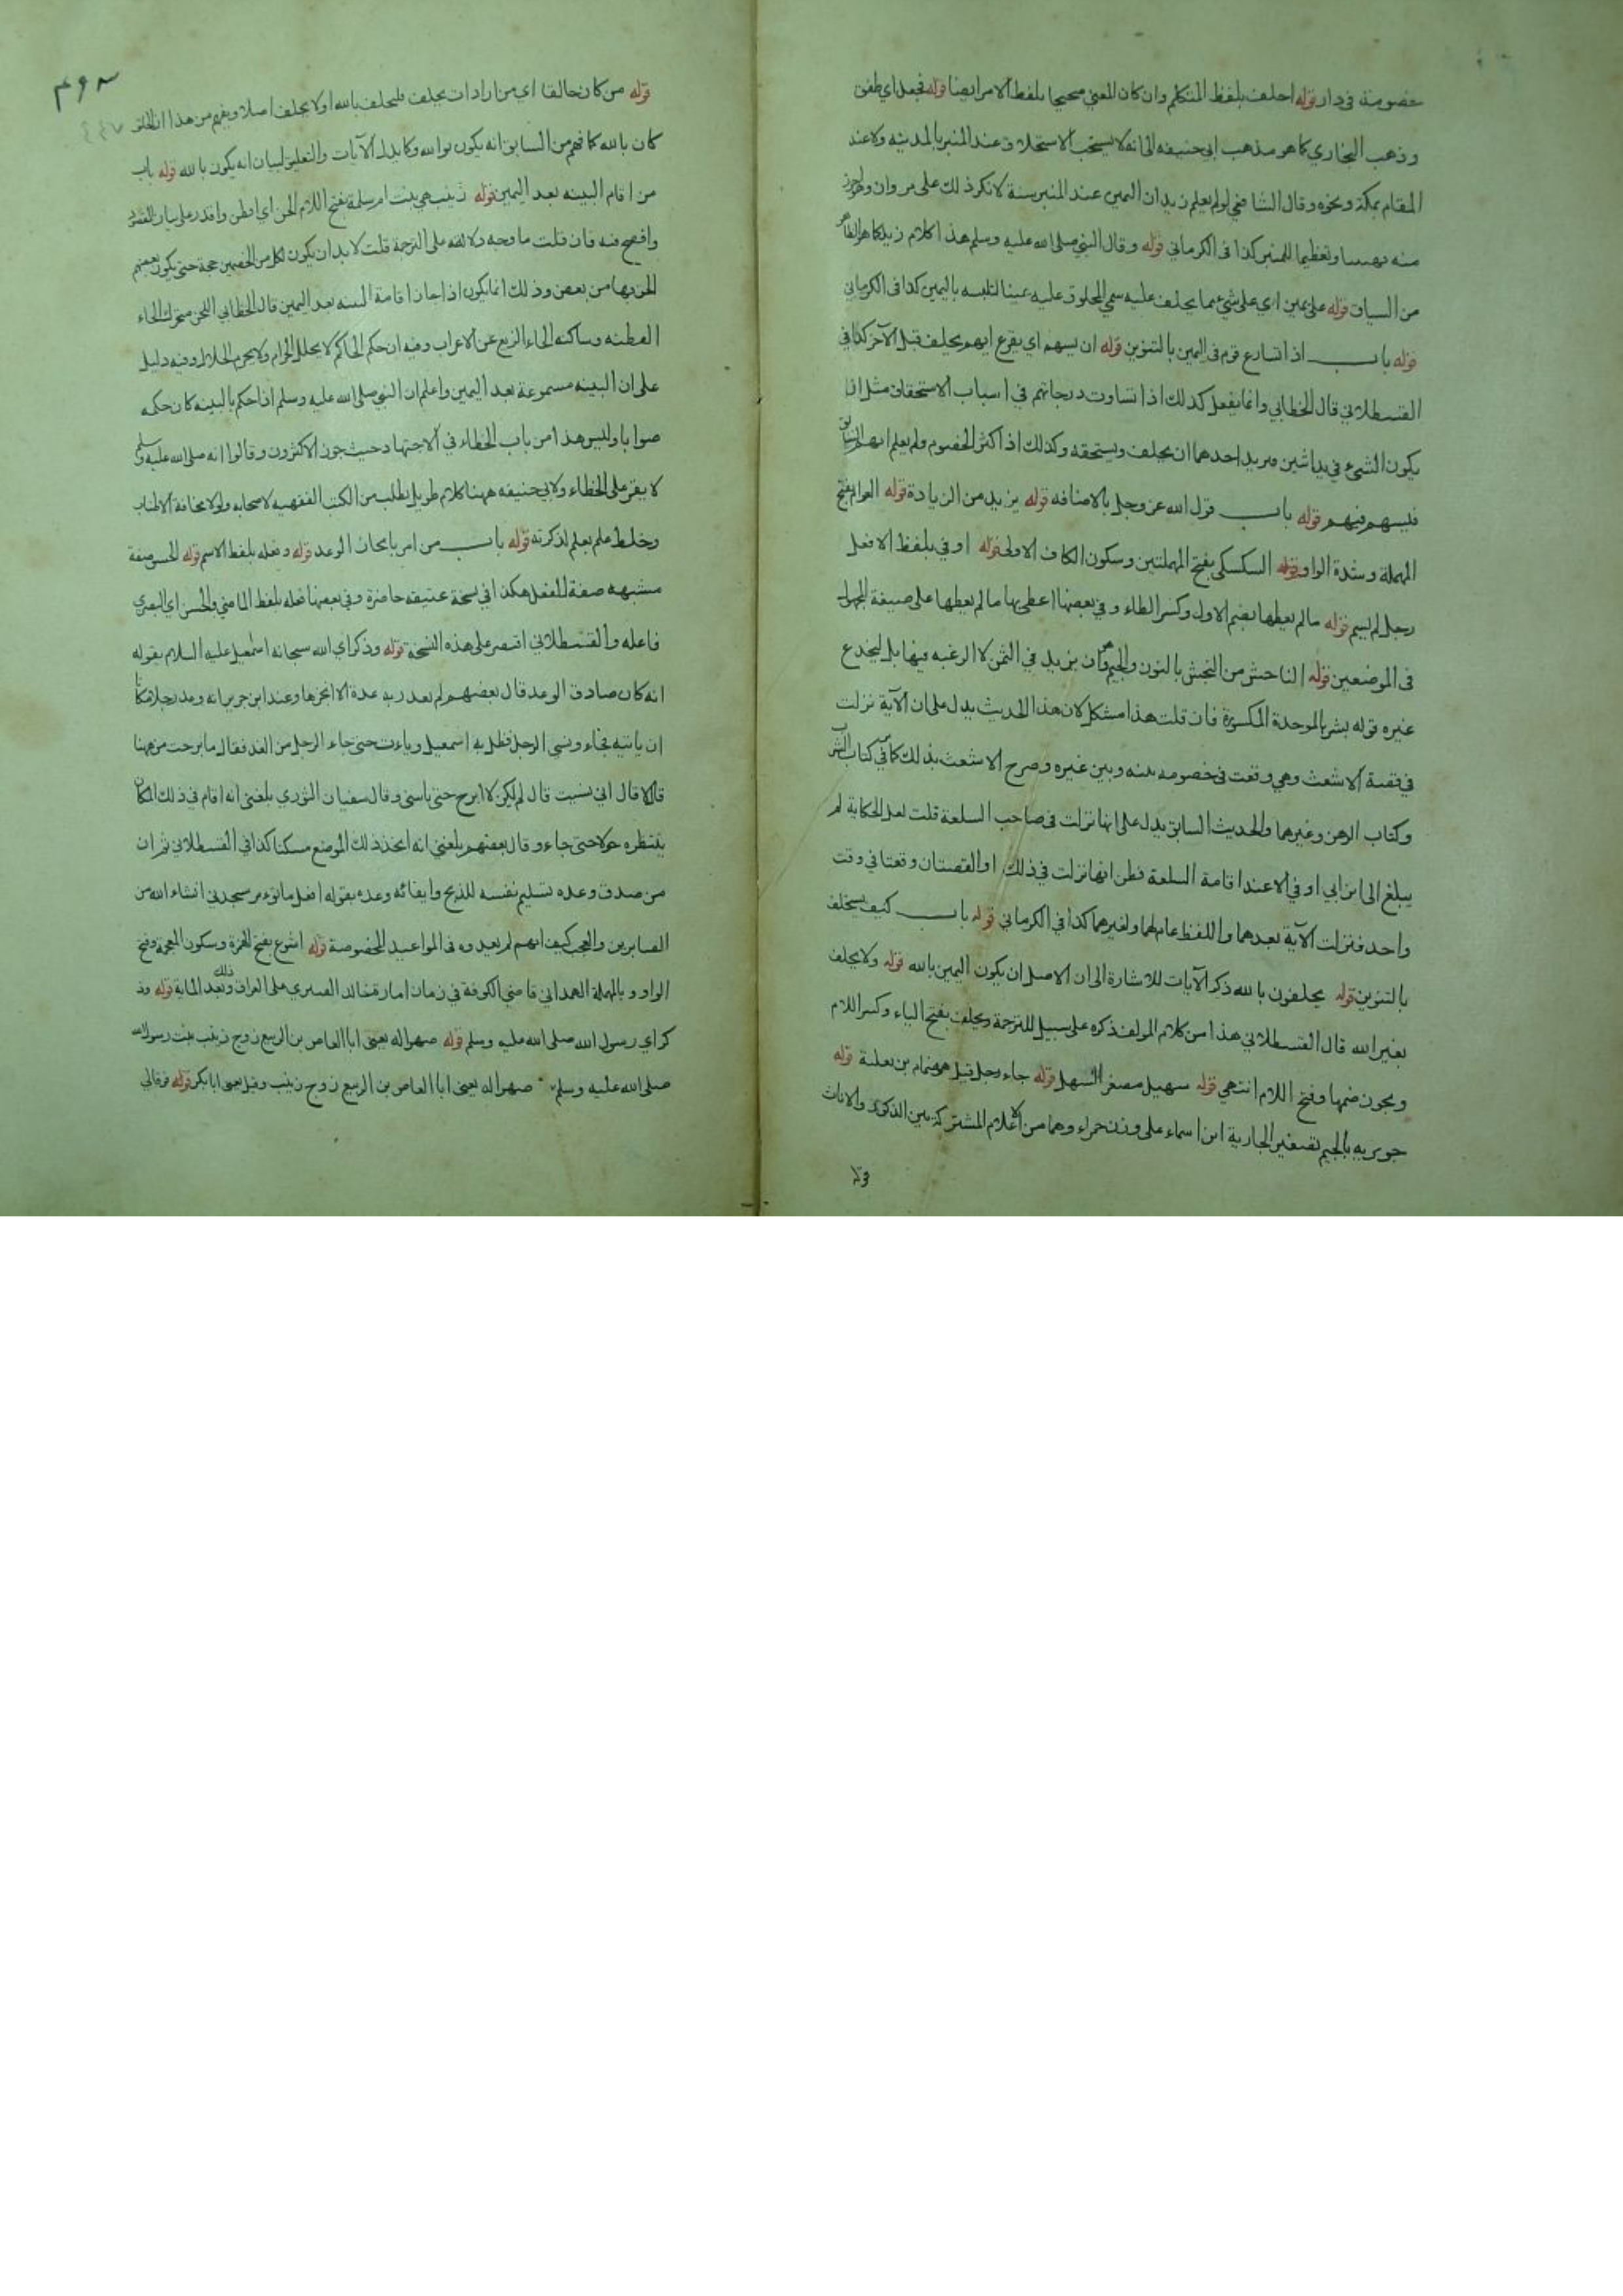 خصومة في دار قوله احلف بلفظ المتكلم وان كان المعني صحيحا بلفظ الامر ايضا قوله فجعل اي طفق
وذهب البخاري كما هو مذهب ابي حنيفه الى انه لا يستحب الاستحلاف عند المنبر بالمدينه ولا عند
المقام بمكة ونحوه وقال الشافعي لو لم يعلم زيد ان اليمين عند المنبر سنة لانكر ذلك على مروان
منه تهيبا وتعظيما للمنبر كذا في الكرماني قوله وقال النبي صلى الله عليه وسلم هذا كلام زيد كما هو الظاهر
من السياق قوله على يمين اي على شيء مما يحلف عليه سمي المحلوف عليه يمينا لتلبسه باليمين كذا في الكرماني
قوله باب اذا تسارع قوم في اليمين بالتنوين قوله ان يسهم اي يقرع ايهم يحلف قبل الآخر كذا في
القسطلاني قال الخطابي وانما يفعل كذلك اذا تساوت درجاتهم في اسباب الاستحقاق مثل ان
يكون الشيء في يد اثنين يريد احدهما ان يحلف ويستحقه وكذلك اذا كثر الخصوم ولم يعلم ايهم السابق
فيسهم فيهم قوله باب قول الله عز وجل بالاضافه قوله يزيد من الزيادة قوله العوام بفتح
المهملة وشدة الواو قوله السكسكي بفتح المهملتين وسكون الكاف الاولى قوله اوفي بلفظ الافعل
رجل لم يسم قوله ما لم يعطها بضم الاول وكسر الطاء وفي بعضها اعطي بها ما لم يعطها على صيغة المجهول
في الموضعين قوله الناجش من النجش بالنون والجيم وهو ان يزيد في الثمن لا لرغبه فيها بل ليخدع
غيره قوله بشر بالموحدة المكسورة فان قلت هذا مشكل لان هذا الحديث يدل على ان الآية نزلت
في قصة الاشعث وهي وقعت في خصومه بينه وبين غيره وصرح الاشعث بذلك كما مر في كتاب الشرب
وكتاب الرهن وغيرها والحديث السابق يدل على انها نزلت في صاحب السلعة قلت لعل الحكاية لم
يبلغ الى ابن ابي اوفي الا عند اقامة السلعة فظن انها نزلت في ذلك او القصتان وقعتا في وقت
واحد فنزلت الآية بعدهما واللفظ عام لهما ولغيرهما كذا في الكرماني قوله باب كيف يستحلف
بالتنوين قوله يحلفون بالله ذكر الآيات للاشارة الى ان الاصل ان يكون اليمين بالله قوله ولا يحلف
بغير الله قال القسطلاني هذا من كلام المولف ذكره على سبيل للترجمة ويحلف بفتح الياء وكسر اللام
ويجوز ضمها وفتح اللام انتهي قوله سهيل مصغر السهل قوله جاء رجل قيل هو ضمام بن ثعلبة قوله
جويريه بالجيم تصغير الجارية ابن اسماء على وزن حمراء وهما من الاعلام المشتركة بين الذكور والاناث
قوله
قوله من كان حالفا اي من اراد ان يحلف فليحلف بالله او لا يحلف اصلا ويفهم من هذا ان الحلف
كان بالله كما فهم من السابق انه يكون بوالله وكما يدل الآيات والتعليق لبيان انه يكون بالله قوله باب
من اقام البينه بعد اليمين قوله زينب هي بنت ام سلمة بفتح اللام الحن اي افطن واقدر على بيان المقصود
وافصح فيه فان قلت ما وجه دلالته على الترجمة قلت لا بد ان يكون لكل من الخصمين حجة حتى يكون بعضهم
الحن بها من بعض وذلك انما يكون اذا جاز اقامة البينه بعد اليمين قال الخطابي اللحن متحرك الحاء
الفطنه وساكنه الحاء الزيغ عن الاعراب وفيه ان حكم الحاكم لا يحلل الحرام ولا يحرم الحلال وفيه دليل
على ان البينه مسموعة بعد اليمين واعلم ان النبي صلى الله عليه وسلم اذا حكم بالبينه كان حكمه
صوابا وليس هذا من باب الخطاء في الاجتهاد حيث جوزه الاكثرون وقالوا انه صلى الله عليه وسلم
لا يقر على الخطاء ولابي حنيفه ههنا كلام طويل يطلب من الكتب الفقهيه لاصحابه ولولا مخافة الاطناب
وخلط علم بعلم لذكرته قوله باب من امر بانجاز الوعد قوله وفعله بلفظ الاسم قوله الحسن صفة
مشبهه صفة للفعل هكذا في نسخة عتيقه حاضرة وفي بعضها فعله بلفظ الماضي والحسن اي البصري
فاعله والقسطلاني اقتصر على هذه النسخة قوله وذكر اي الله سبحانه اسمعيل عليه السلام بقوله
انه كان صادق الوعد قال بعضهم لم يعد ربه عدة الا انجزها وعند ابن جرير انه وعد رجلا مكانا
ان ياتيه فجاء ونسي الرجل فظل به اسمعيل وبات حتى جاء الرجل من الغد فقال ما برحت من ههنا
قال لا قال اني نسيت قال لم اكن لا ابرح حتى تاتيني وقال سفيان الثوري بلغني انه اقام في ذلك المكان
ينتظره حولا حتى جاء وقال بعضهم بلغني انه اتخذ ذلك الموضع مسكنا كذا في القسطلاني ثم ان
من صدق وعده تسليم نفسه للذبح وايفائه وعده بقوله افعل ما تؤمر ستجدني انشاء الله من
الصابرين والعجب كيف انهم لم يعدوه في المواعيد المخصوصة قوله اشوع بفتح الهمزة وسكون المعجمة وفتح
الواو وبالمهملة الهمداني قاضي الكوفة في زمان امارة خالد القسري على العراق وذلك بعد المائة قوله وذ
كر اي رسول الله صلى الله عليه وسلم قوله صهرا له يعني ابا العاص بن الربيع زوج زينب بنت رسول الله
صلى الله عليه وسلم صهرا له يعني ابا العاص بن الربيع زوج زينب وقيل يعني ابا بكر قوله فوفالي